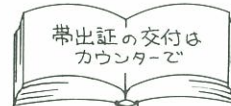 帯出証の交付は
カウンターで